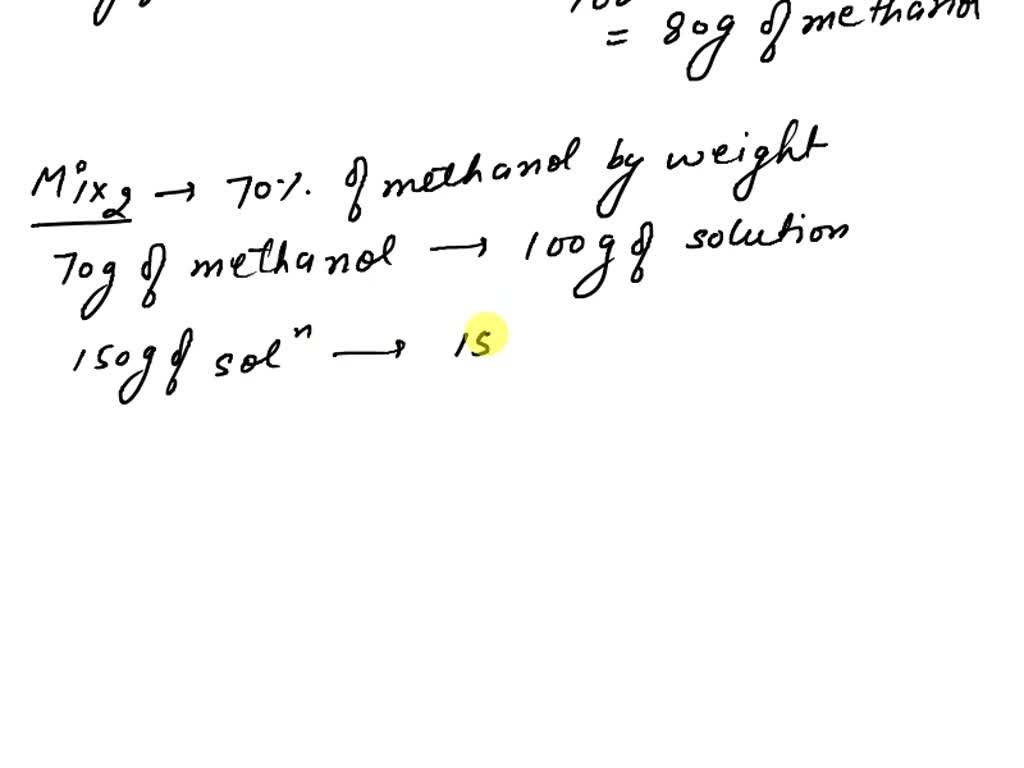 = 80g of methanol
Mix2 → 70% of methanol by weight
70g of methanol → 100g of solution
150g of solⁿ → 15